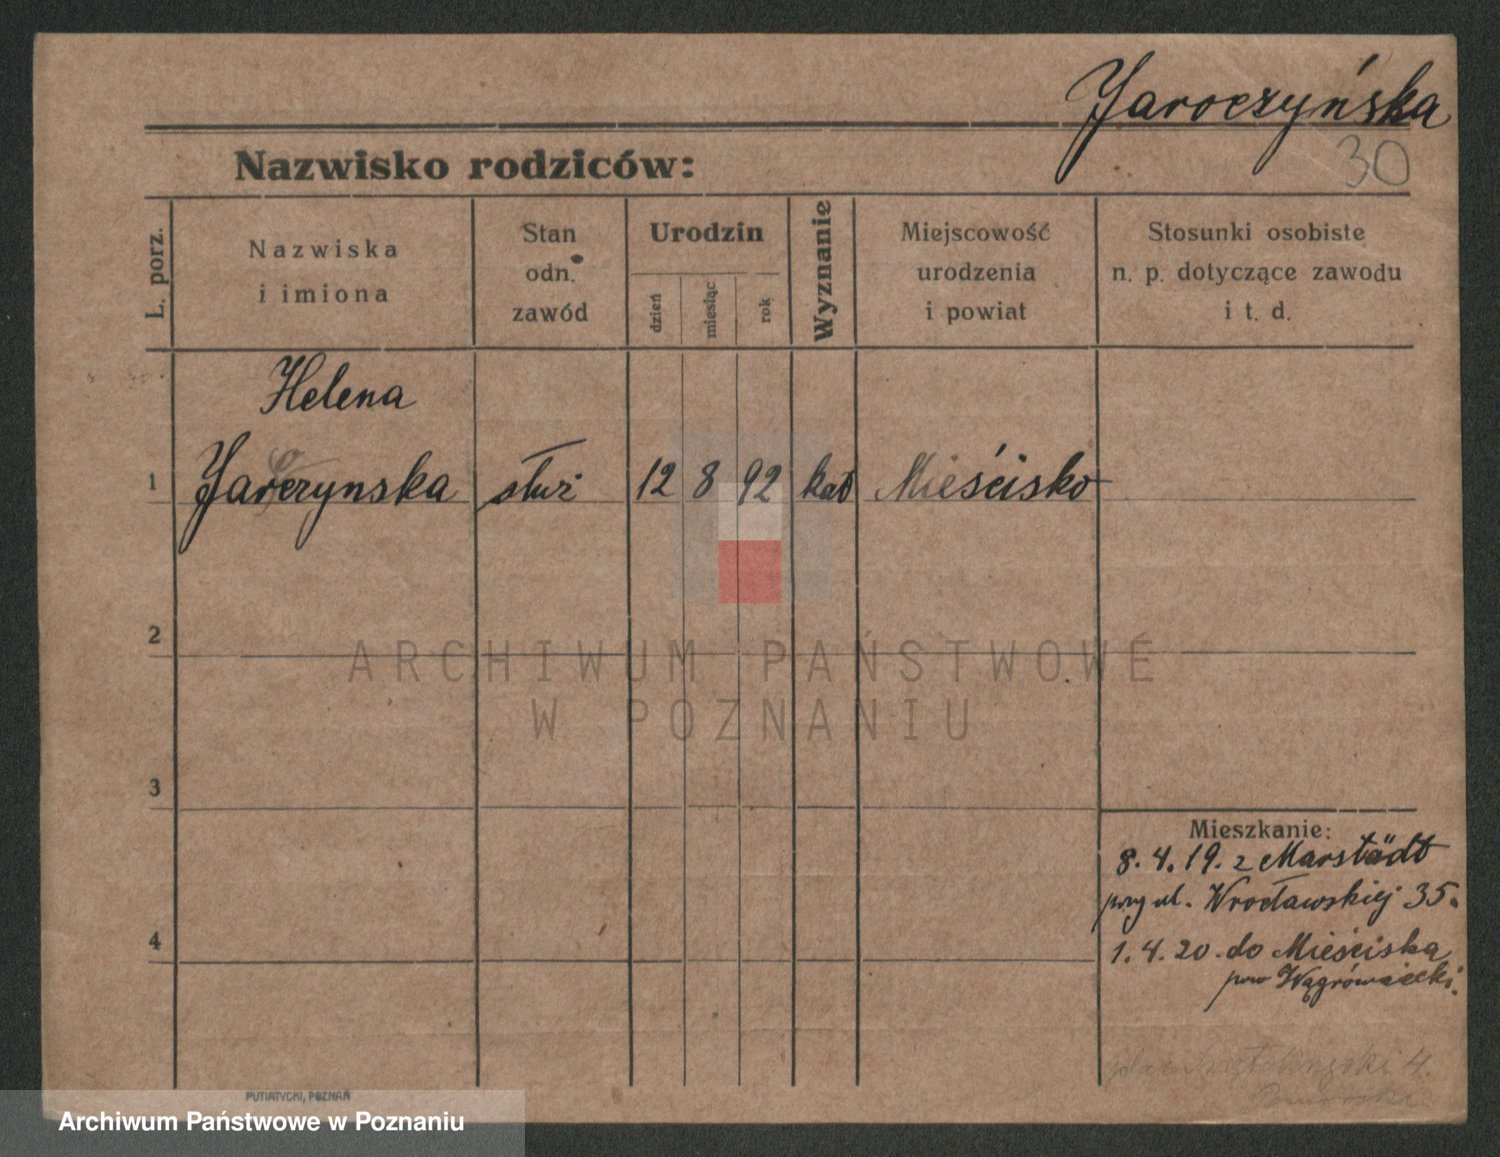 Jaroczyńska
30
Nazwisko rodziców:
L. porz.
Nazwiska
i imiona
Stan
odn.
zawód
Urodzin
dzień
miesiąc
rok
Wyznanie
Miejscowość
urodzenia
i powiat
Stosunki osobiste
n. p. dotyczące zawodu
i t. d.
Helena
1 Jaroczynska służ 12 8 92 kat Mieścisko
2
3
4
ARCHIWUM PAŃSTWOWE
W POZNANIU
Mieszkanie:
8. 4. 19. z Marstädt
przy ul. Wrocławskiej 35.
1. 4. 20. do Mieściska
pow Wągrówiecki.
plac 4.
PUTIATYCKI, POZNAŃ
Archiwum Państwowe w Poznaniu